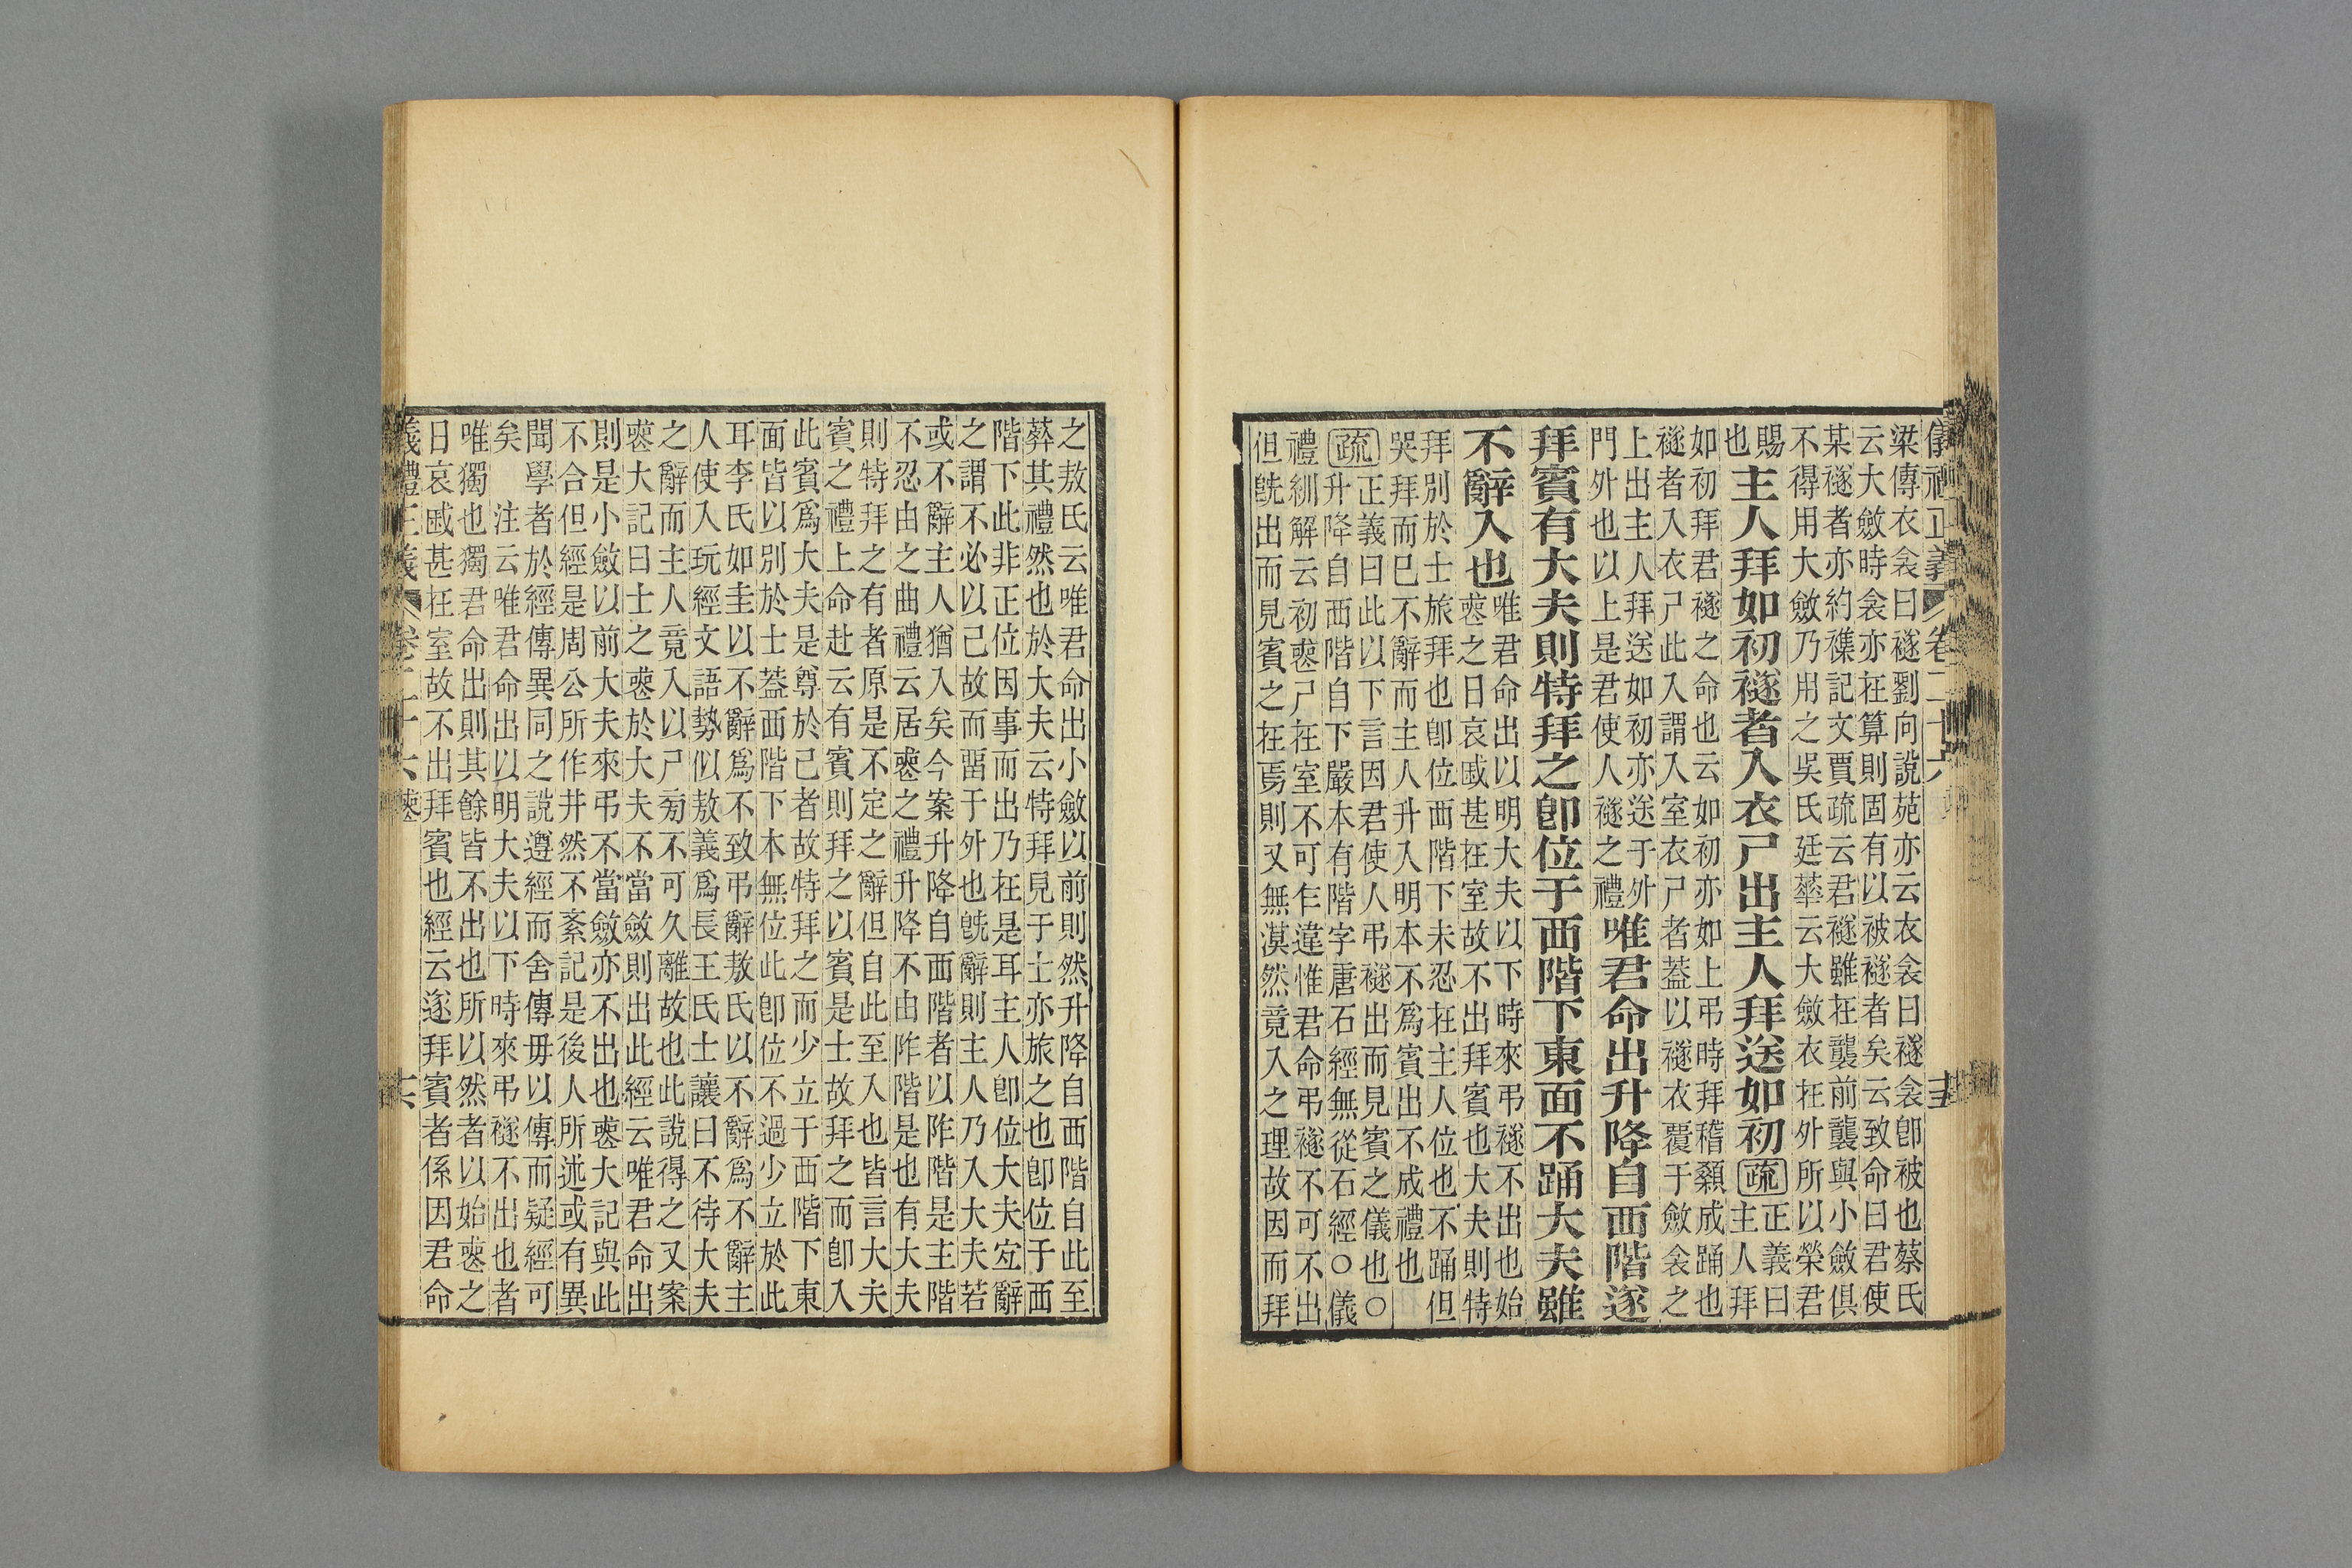 儀禮正義 卷二十六
梁傳衣衾曰襚劉向說苑亦云衣衾曰襚衾卽被也蔡氏
云大斂時衾亦在算則固有以被襚者矣云致命曰君使
某襚者亦約襍記文賈疏云君襚雖在襲前襲與小斂俱
不得用大斂乃用之吳氏廷華云大斂衣在外所以榮君
賜
也
主人拜如初襚者入衣尸出主人拜送如初疏
正義曰
主人拜
如初拜君襚之命也云如初亦如上弔時拜稽顙成踊也
襚者入衣尸此入謂入室衣尸者蓋以襚衣覆于斂衾之
上出主人拜送如初亦送于外
門外也以上是君使人襚之禮
唯君命出升降自西階遂
拜賓有大夫則特拜之卽位于西階下東面不踊大夫雖
不辭入也
唯君命出以明大夫以下時來弔襚不出也始
喪之日哀慼甚在室故不出拜賓也大夫則特
拜別於士旅拜也卽位西階下未忍在主人位也不踊但
哭拜而已不辭而主人升入明本不爲賓出不成禮也
疏
正義曰此以下言因君使人弔襚出而見賓之儀也○
升降自西階自下嚴本有階字唐石經無從石經○儀
禮紃解云初喪尸在室不可乍違惟君命弔襚不可不出
但旣出而見賓之在焉則又無漠然竟入之理故因而拜
之敖氏云唯君命出小斂以前則然升降自西階自此至
葬其禮然也於大夫云特拜見于士亦旅之也卽位于西
階下此非正位因事而出乃在是耳主人卽位大夫宐辭
之謂不必以己故而畱于外也旣辭則主人乃入大夫若
或不辭主人猶入矣今案升降自西階者以阼階是主階
不忍由之曲禮云居喪之禮升降不由阼階是也有大夫
則特拜之有者原是不定之辭但自此至入也皆言大夫
賓之禮上命赴云有賓則拜之以賓是士故拜之而卽入
此賓爲大夫是尊於己者故特拜之而少立于西階下東
面皆以別於士蓋西階下本無位此卽位不過少立於此
耳李氏如圭以不辭爲不致弔辭敖氏以不辭爲不辭主
人使入玩經文語勢似敖義爲長王氏士讓曰不待大夫
之辭而主人竟入以尸㫄不可久離故也此說得之又案
喪大記曰士之喪於大夫不當斂則出此經云唯君命出
則是小斂以前大夫來弔不當斂亦不出也喪大記與此
不合但經是周公所作井然不紊記是後人所述或有異
聞學者於經傳異同之說遵經而舍傳毋以傳而疑經可
矣　注云唯君命出以明大夫以下時來弔襚不出也者
唯獨也獨君命出則其餘皆不出也所以然者以始喪之
日哀慼甚在室故不出拜賓也經云遂拜賓者係因君命
儀禮正義 卷二十六 喪